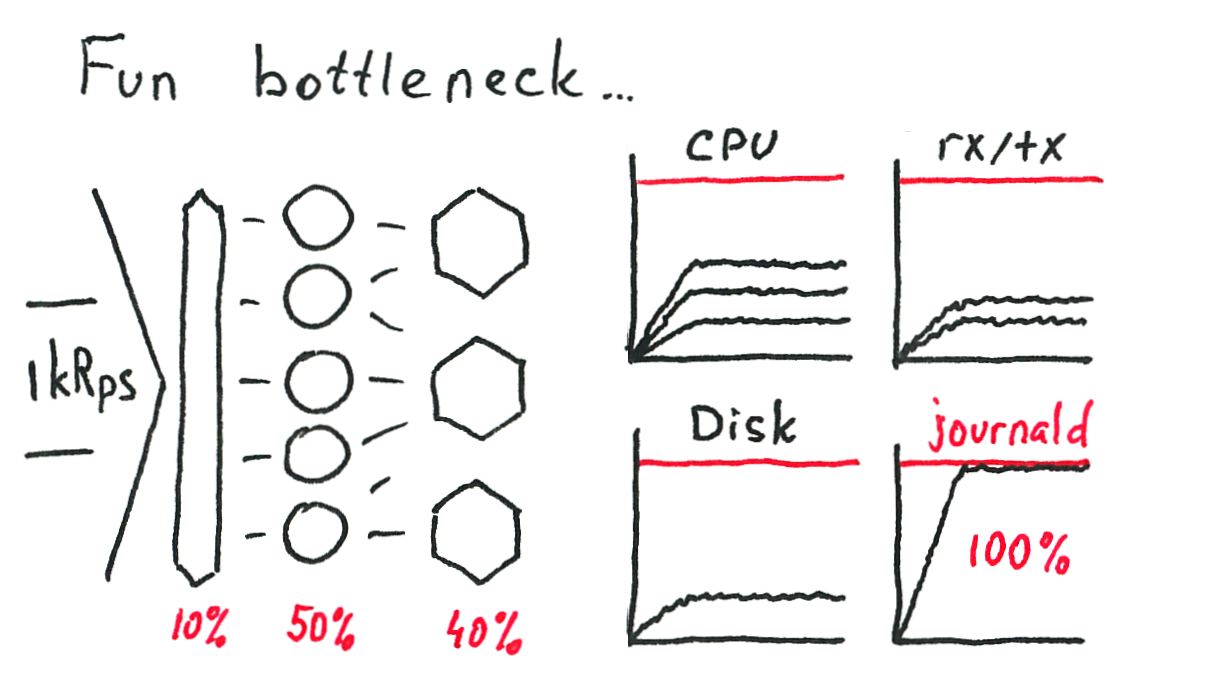 Fun bottleneck...
1kRps
10%
50%
40%
CPU
rx/tx
Disk
journald
100%